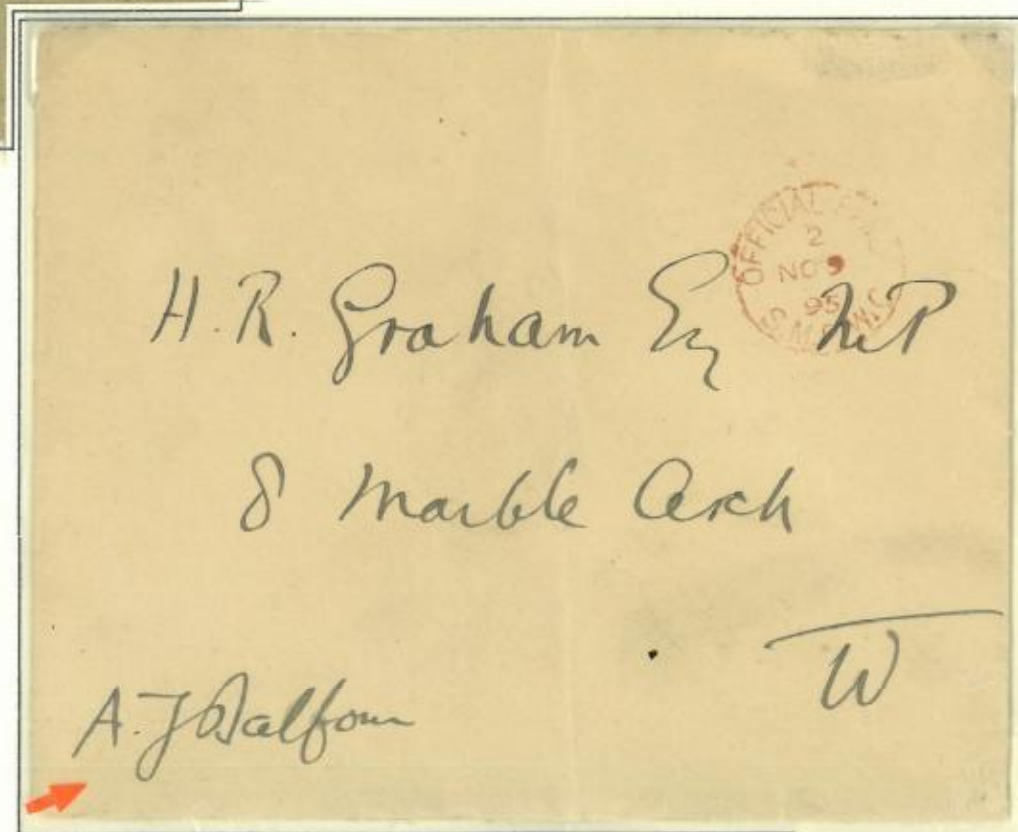 OFFICIAL PAID
2
NO 9
95
S.M.P. W.C
H. R. Graham Esq MP
8 Marble Arch
W
A. J Balfour